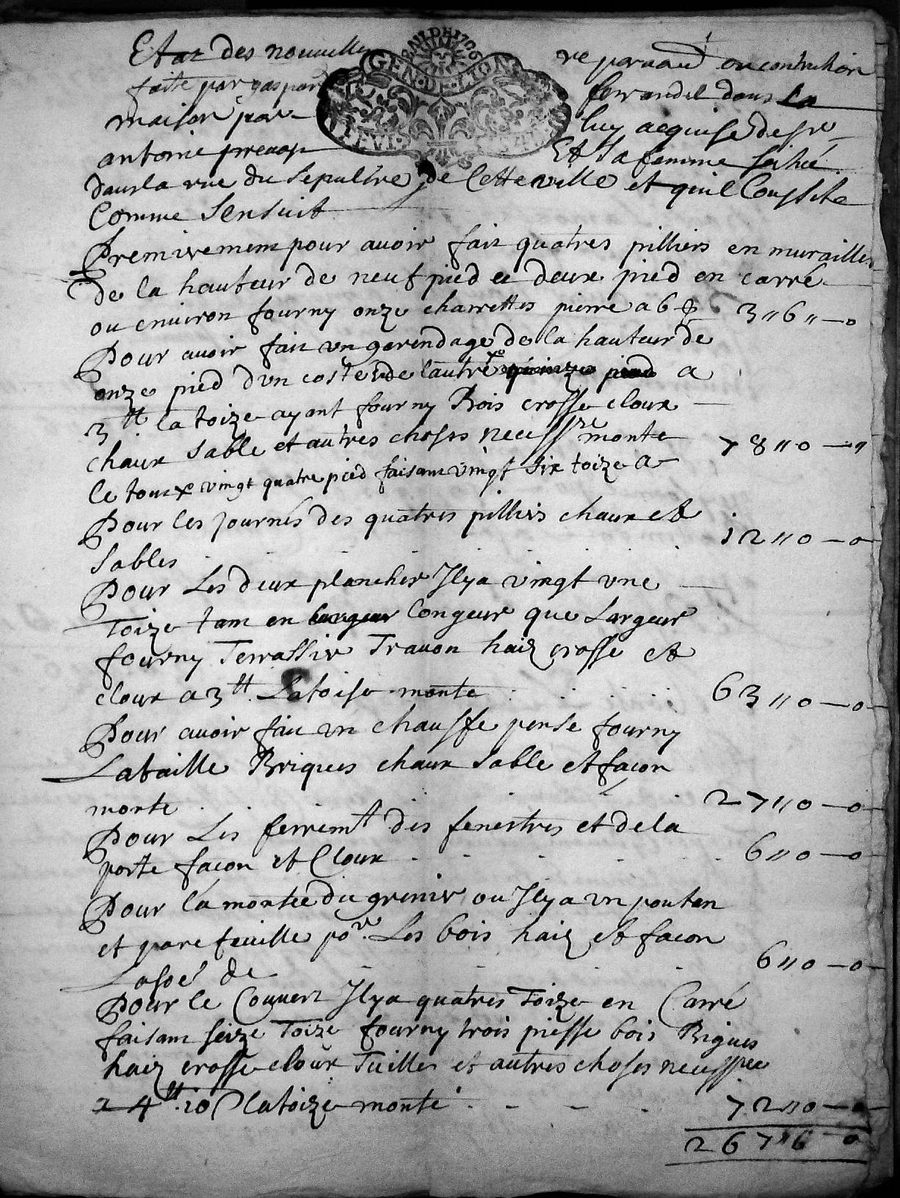 Estat des nouvelle re parna^d^ ou contruction
faite par gaspard ferrandel dans La
maison par luy acquise de sr
antoine Et sa femme
dans la rue du Sepulcre de Cette ville et quil Consiste
Comme Sensuit
Premirement pour avoir fait quatres pilliers en murailles
de la hauteur de neuf pied e deux pied en carré
ou environ fourny onze charrettes pierre a 6 3 " 6 " — 0
Pour avoir fait un garendage de la hauteur de
onze pied dun coste & de lautre a
3 tt la toize ayant fourny Bois crosse cloux
chaux Sable et autres choses necess^re^ monte 78 " 0 — "
Le tout vingt quatre pied faisant vingt Six toize a
Pour les journés des quatres pilliers chaux et 12 " 0 — 0
Sables
Pour Les deux plancher Il y a vingt une
Toize tant en Longeur que Largeur
fourny Terrassier Travon haiz crosse et
cloux a 3 tt La toise monte 63 " 0 — 0
Pour avoir fait un chauffe pense fourny
La taille Briques chaux Sable et façon
monte 27 " 0 — 0
Pour Les ferrem^t^ des fenestres et de la
porte façon et Cloux 6 " 0 — 0
Pour la montée du grenier ou Il y a un
et pare feuille po^r^ Les bois haiz et façon
de 6 " 0 — 0
Pour le Couvert Il y a quatres Toize en Carré
faisant seize Toize fourny trois piesse bois Bigues
haiz crosse cloux Tuilles et autres choses necess^re^
a 4 tt 10 la toize monte 72 " 0 — 0
267 " 6 — 0
GEN · DE · LYON